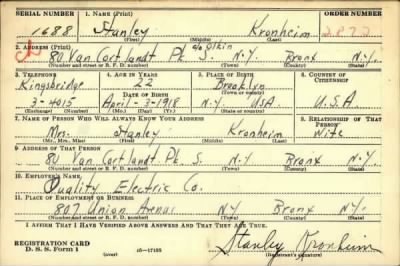 SERIAL NUMBER 1. NAME (Print) ORDER NUMBER
1688 Stanley Kronheim 2822
(First) (Middle) (Last)
2. ADDRESS (Print) c/o Olkin
80 Van Cortlandt Pk. S. N.Y. Bronx N.Y.
(Number and street or R. F. D. number) (Town) (County) (State)
3. TELEPHONE 4. AGE IN YEARS 5. PLACE OF BIRTH 6. COUNTRY OF CITIZENSHIP
Kingsbridge 22 Brooklyn
DATE OF BIRTH (Town or county)
3-4015 April-3-1918 N.Y. USA. U.S.A
(Exchange) (Number) (Mo.) (Day) (Yr.) (State or country)
7. NAME OF PERSON WHO WILL ALWAYS KNOW YOUR ADDRESS 8. RELATIONSHIP OF THAT PERSON
Mrs. Stanley Kronheim Wife
(Mr., Mrs., Miss) (First) (Middle) (Last)
9. ADDRESS OF THAT PERSON
80 Van Cortlandt Pk. S. N.Y Bronx N.Y.
(Number and street or R. F. D. number) (Town) (County) (State)
10. EMPLOYER'S NAME
Quality Electric Co.
11. PLACE OF EMPLOYMENT OR BUSINESS
807 Union Avenue N.Y Bronx N.Y.
(Number and street or R. F. D. number) (Town) (County) (State)
I AFFIRM THAT I HAVE VERIFIED ABOVE ANSWERS AND THAT THEY ARE TRUE.
REGISTRATION CARD
D. S. S. Form 1 (over) 16—17105 Stanley Kronheim
(Registrant's signature)